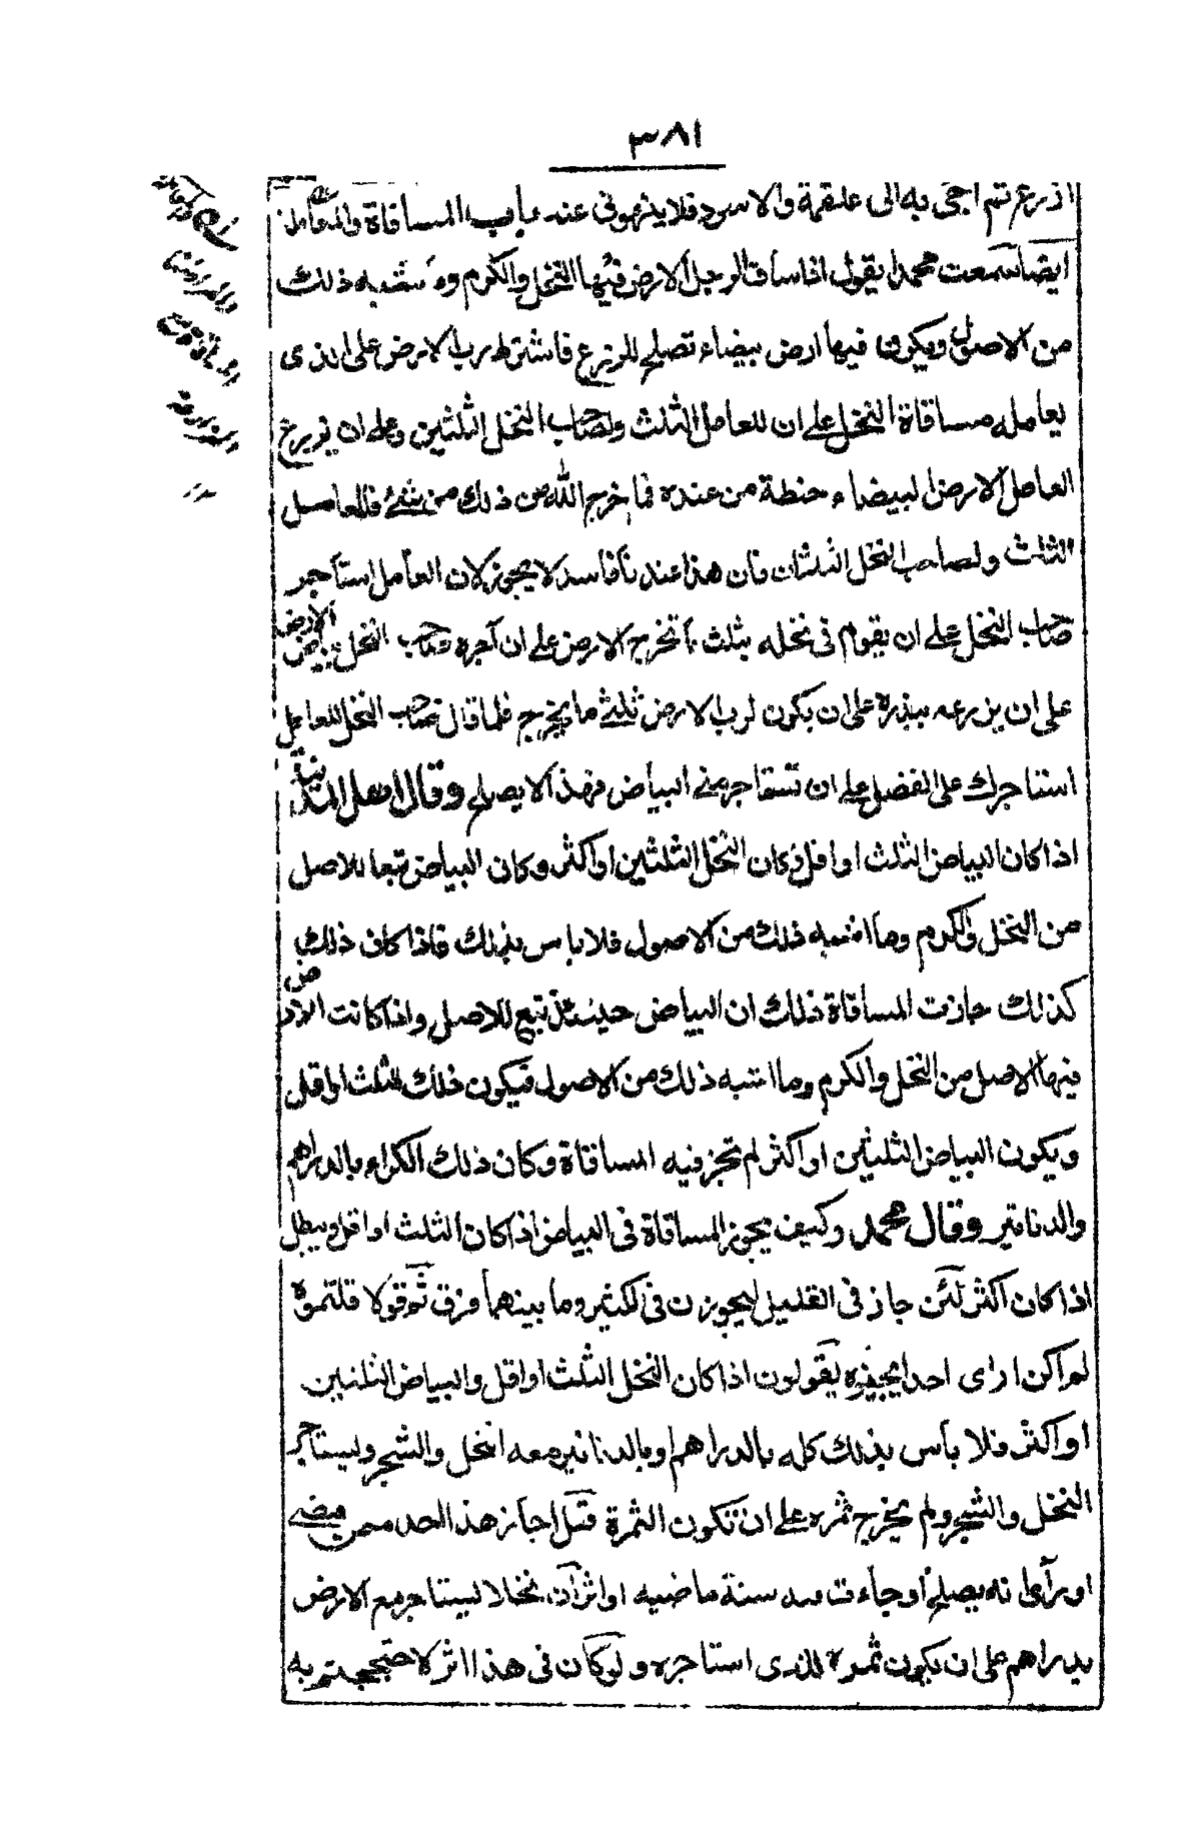 ٣٨١
ازرع ثم اجئ به الى علقمة والاسود فلا ينهوني عنه باب المساقاة والمعاملة
ايضا سمعت محمدا يقول اذا ساقى الرجل الارض فيها النخل والكرم وما شبه ذلك
من الاصول ويكون فيها ارض بيضاء تصلح للزرع فاشترط رب الارض على الذى
يعامله مساقاة النخل على ان للعامل الثلث ولصاحب النخل الثلثين وعلى ان يزرع
العامل الارض البيضاء حنطة من عنده فما اخرج الله من ذلك من شئ فللعامل
الثلث ولصاحب النخل الثلثان فان هذا عندنا فاسد لا يجوز لان العامل استاجر
صاحب النخل على ان يقوم في نخله بثلث ما تخرج الارض على ان آجره صاحب النخل بياض الارض
على ان يزرعه ببذره على ان يكون لرب الارض ثلثى ما يخرج فلما قال صاحب النخل للعامل
استاجرك على الفضل على ان تستاجر منى البياض فهذا لا يصلح وقال اهل المدينة
اذا كان البياض الثلث او اقل وكان النخل الثلثين او اكثر وكان البياض تبعا للاصل
من النخل والكرم وما اشبه ذلك من الاصول فلا باس بذلك فاذا كان ذلك
كذلك جازت المساقاة ذلك ان البياض حينئذ تبع للاصل واذا كانت الارض
فيها الاصل من النخل والكرم وما اشبه ذلك من الاصول فيكون ذلك الثلث او اقل
ويكون البياض الثلثين او اكثر لم تجز فيه المساقاة وكان ذلك الكراء بالدراهم
والدنانير وقال محمد وكيف يجوز المساقاة فى البياض اذا كان الثلث او اقل ويبطل
اذا كان اكثر لئن جاز فى القليل ليجوزن فى الكثير وما بينهما فرق ثم قولا قلتموه
لم اكن ارى احدا يجيزه يقولون اذا كان النخل الثلث او اقل والبياض الثلثين
او اكثر فلا باس بذلك كله بالدراهم او بالدنانير معه النخل والشجر وليستاجر
النخل والشجر ولم يخرج ثمره على ان تكون الثمرة قبل اجاز هذا احد ممن مضى
او رآى انه يصلح او جاءت فيه سنة ماضيه او اثر ان نخلا ليستاجر مع الارض
بدراهم على ان يكون ثمره للذى استاجره ولو كان فى هذا اثر لاحتججتم به